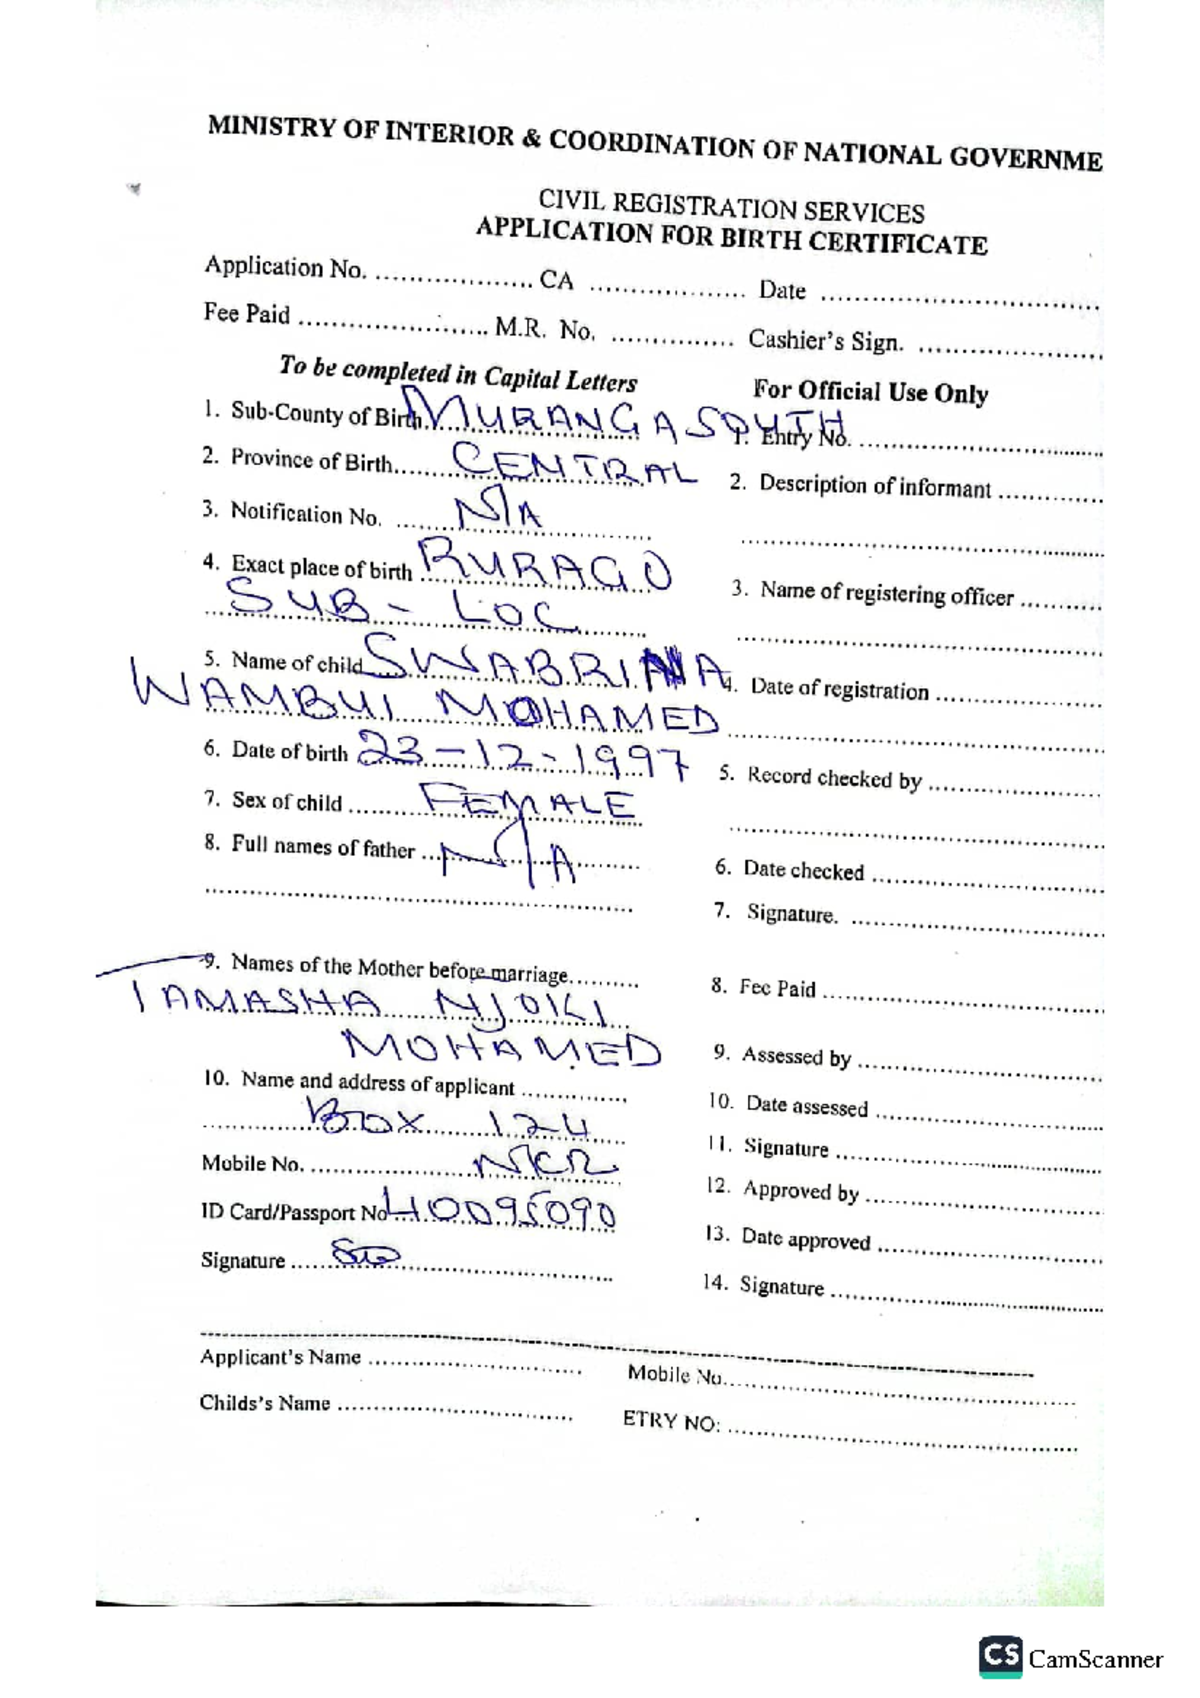 MINISTRY OF INTERIOR & COORDINATION OF NATIONAL GOVERNME
CIVIL REGISTRATION SERVICES
APPLICATION FOR BIRTH CERTIFICATE
Application No. .................... CA .................... Date ....................
Fee Paid .................... M.R. No. .................... Cashier's Sign. ....................
To be completed in Capital Letters
For Official Use Only
1. Sub-County of Birth MURANGA SOUTH
1. Entry No. ....................
2. Province of Birth...... CENTRAL
2. Description of informant ....................
3. Notification No. ...... N/A
4. Exact place of birth RURAGO
3. Name of registering officer ....................
SUB - LOC
5. Name of child SWABRINA
4. Date of registration ....................
WAMBUI MOHAMED
6. Date of birth 23-12-1997
5. Record checked by ....................
7. Sex of child ...... FEMALE
8. Full names of father ...... N/A
6. Date checked ....................
7. Signature. ....................
9. Names of the Mother before marriage..........
8. Fee Paid ....................
TAMASHA NJOKI
MOHAMED
9. Assessed by ....................
10. Name and address of applicant ....................
10. Date assessed ....................
BOX 124
11. Signature ....................
Mobile No. ....................
12. Approved by ....................
ID Card/Passport No 40095090
13. Date approved ....................
Signature ....................
14. Signature ....................
Applicant's Name ....................
Mobile No.....................
Childs's Name ....................
ETRY NO: ....................
CS CamScanner